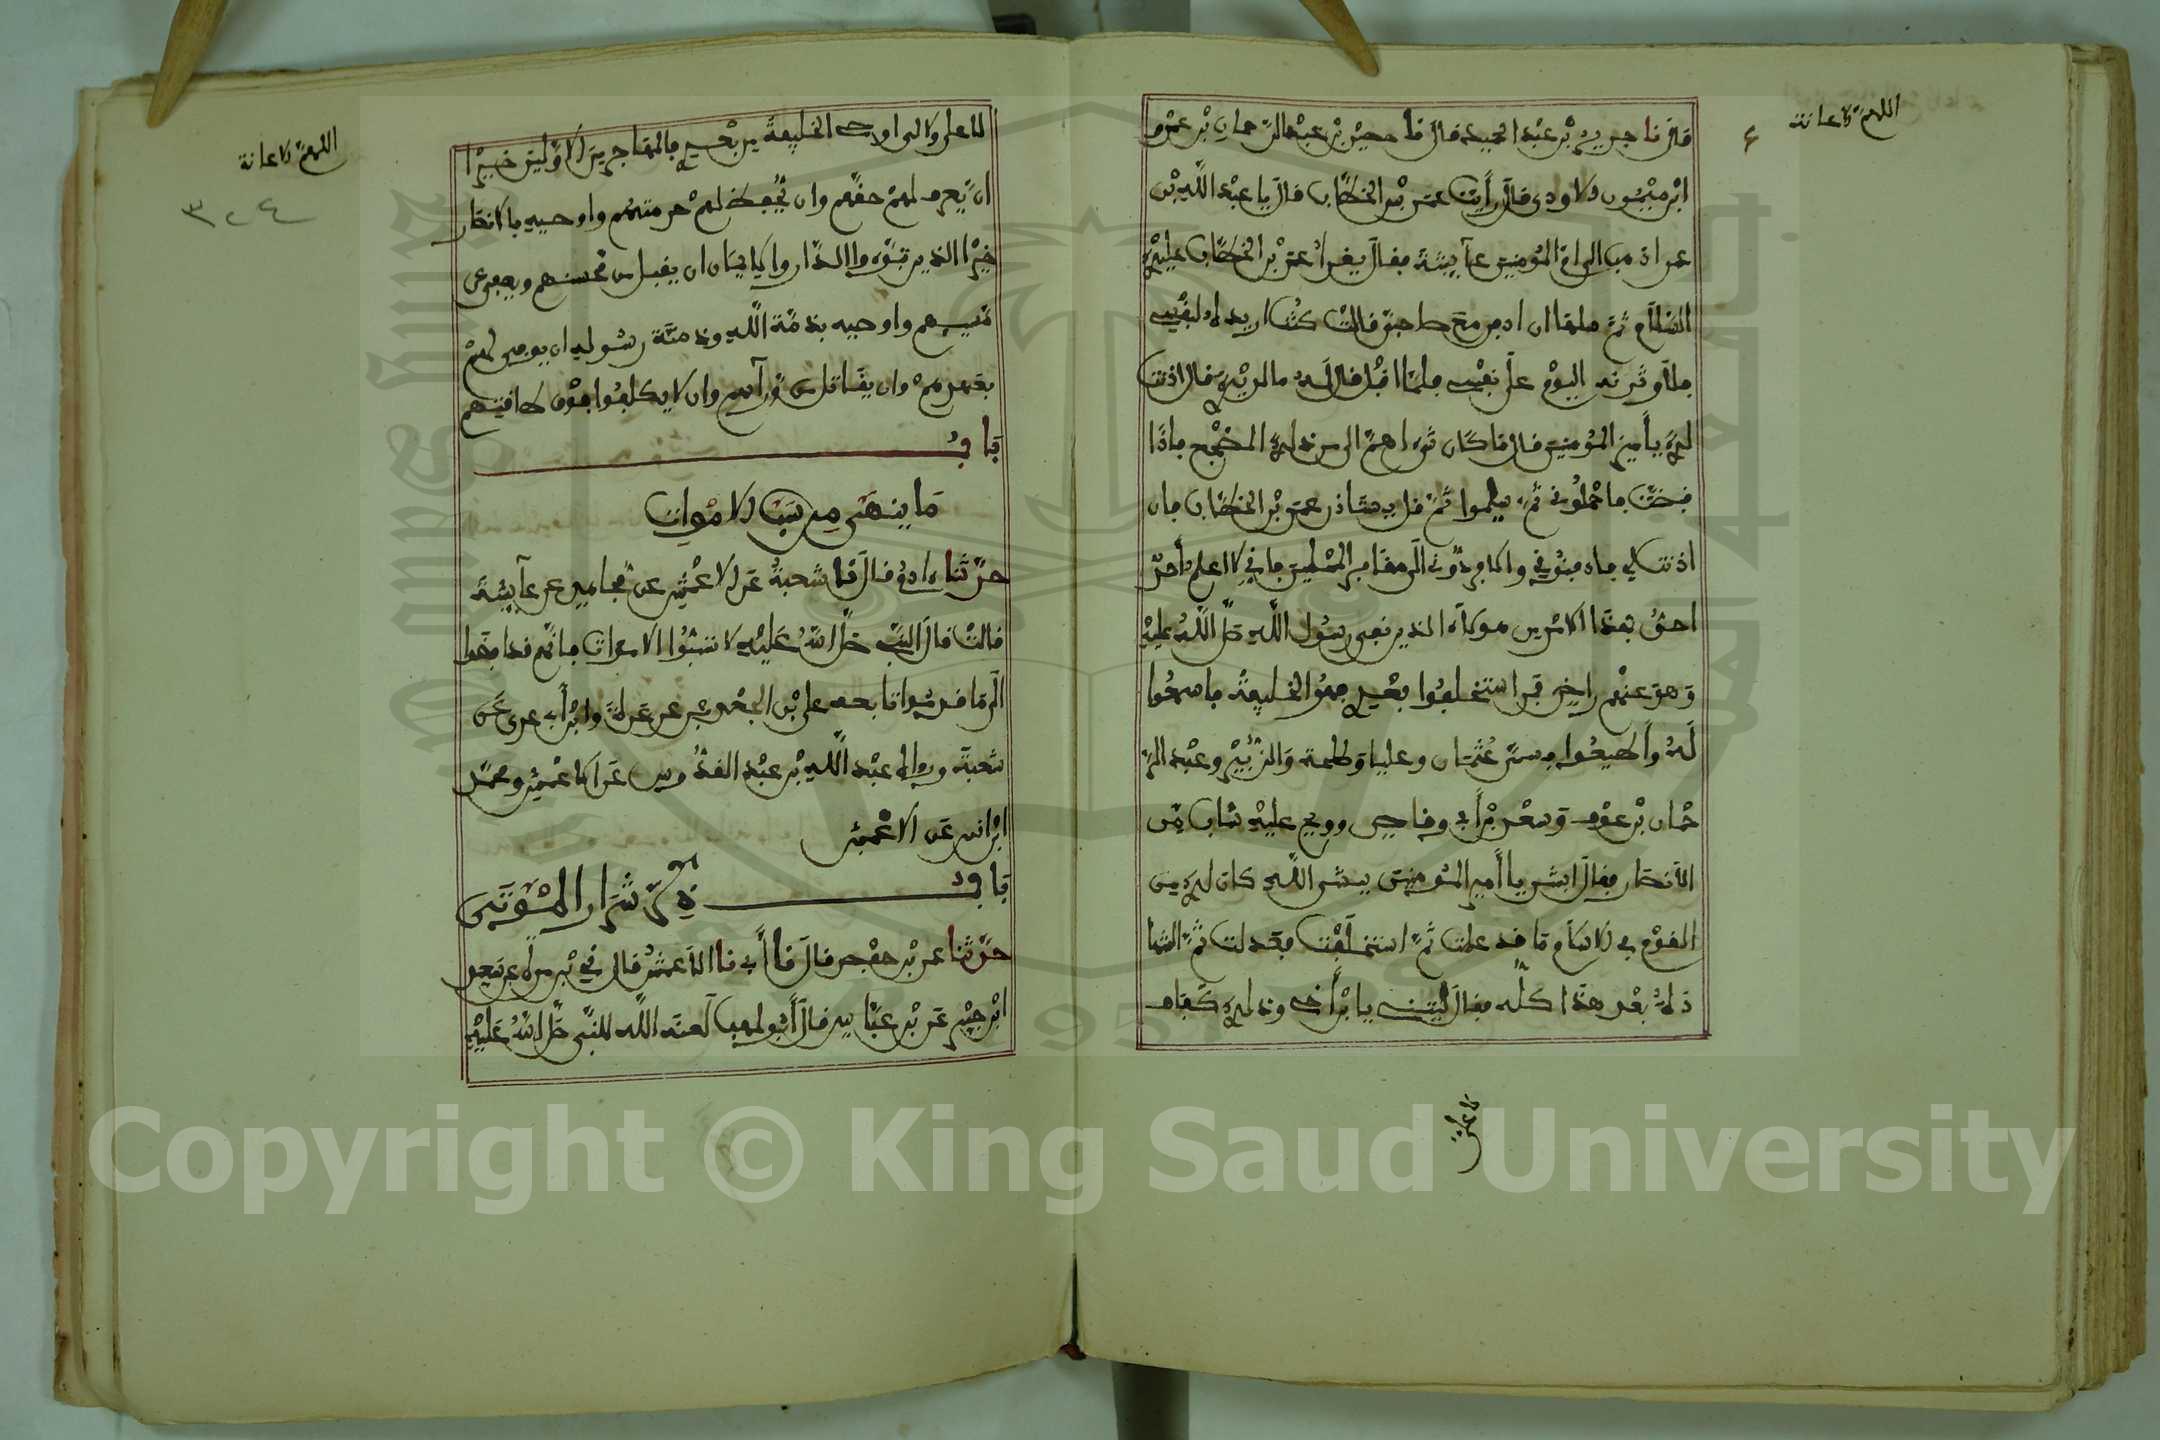 اللهم الاعانة
قال نا جرير بن عبد الحميد قال نا حصين بن عبد الرحمان بن عمرو
ابن ميمون الاودي قال رأيت عمر بن الخطاب قال يا عبد الله بن
عمر اذهب الى ام المومنين عآيشة فقال يقرأ عمر بن الخطاب عليك
السلام ثم سلها ان ادفن مع صاحبي قالت كنت اريده لنفسي
فلأوثرنه اليوم على نفسي فلما اقبل قال له ما لديك قال اذنت
لك يا أمير المومنين قال ما كان شيء اهم الي من ذلك المضجع فاذا
قبضت فاحملوني ثم سلموا ثم قل يستاذن عمر بن الخطاب فان
اذنت لي فادفنوني والا فردوني الى مقابر المسلمين فاني لا اعلم أحدا
احق بهذا الامر من هوءلاء الذين توفي رسول الله صلى الله عليه
وهو عنهم راض فمن استخلفوا بعدي فهو الخليفة فاسمعوا
له وأطيعوا فسمى عثمان وعليا وطلحة والزبير وعبد الر
حمان بن عوف وسعد بن أبي وقاص وولج عليه شاب من
الأنصار فقال ابشر يا أمير المومنين ببشرى الله كان لك من
القدم في الاسلام ما قد علمت ثم استخلفت فعدلت ثم الشها
دة بعد هذا كله فقال ليتني يا ابن أخي وذلك كفاف
لا علي
اللهم الاعانة
٣٠٤
لا علي ولا لي اوصي الخليفة من بعدي بالمهاجرين الاولين خيرا
ان يعرف لهم حقهم وان يحفظ لهم حرمتهم واوصيه بالانصار
خيرا الذين تبوءوا الدار والايمان ان يقبل من محسنهم ويعفى عن
مسيهم واوصيه بذمة الله وذمة رسوله ان يوفي لهم
بعهدهم وان يقاتل من ورآيهم وان لا يكلفوا فوق طاقتهم
باب
ما ينهى من سب الاموات
حدثنا ادم قال نا شعبة عن الاعمش عن مجاهد عن عآيشة
قالت قال النبي صلى الله عليه لا تسبوا الاموات فانهم قد افضوا
الى ما قدموا تابعه علي بن الجعد وعن عرعرة وابن أبي عدي عن
شعبة ورواه عبد الله بن عبد القدوس عن الاعمش ومحمد
ابن انس عن الاعمش
باب ذكر شرار الموتى
حدثنا عمر بن حفص قال نا أبي نا الأعمش قال ني بن مرة عن سعيد
ابن جبير عن بن عباس قال أبو لهب لعنه الله للنبي صلى الله عليه